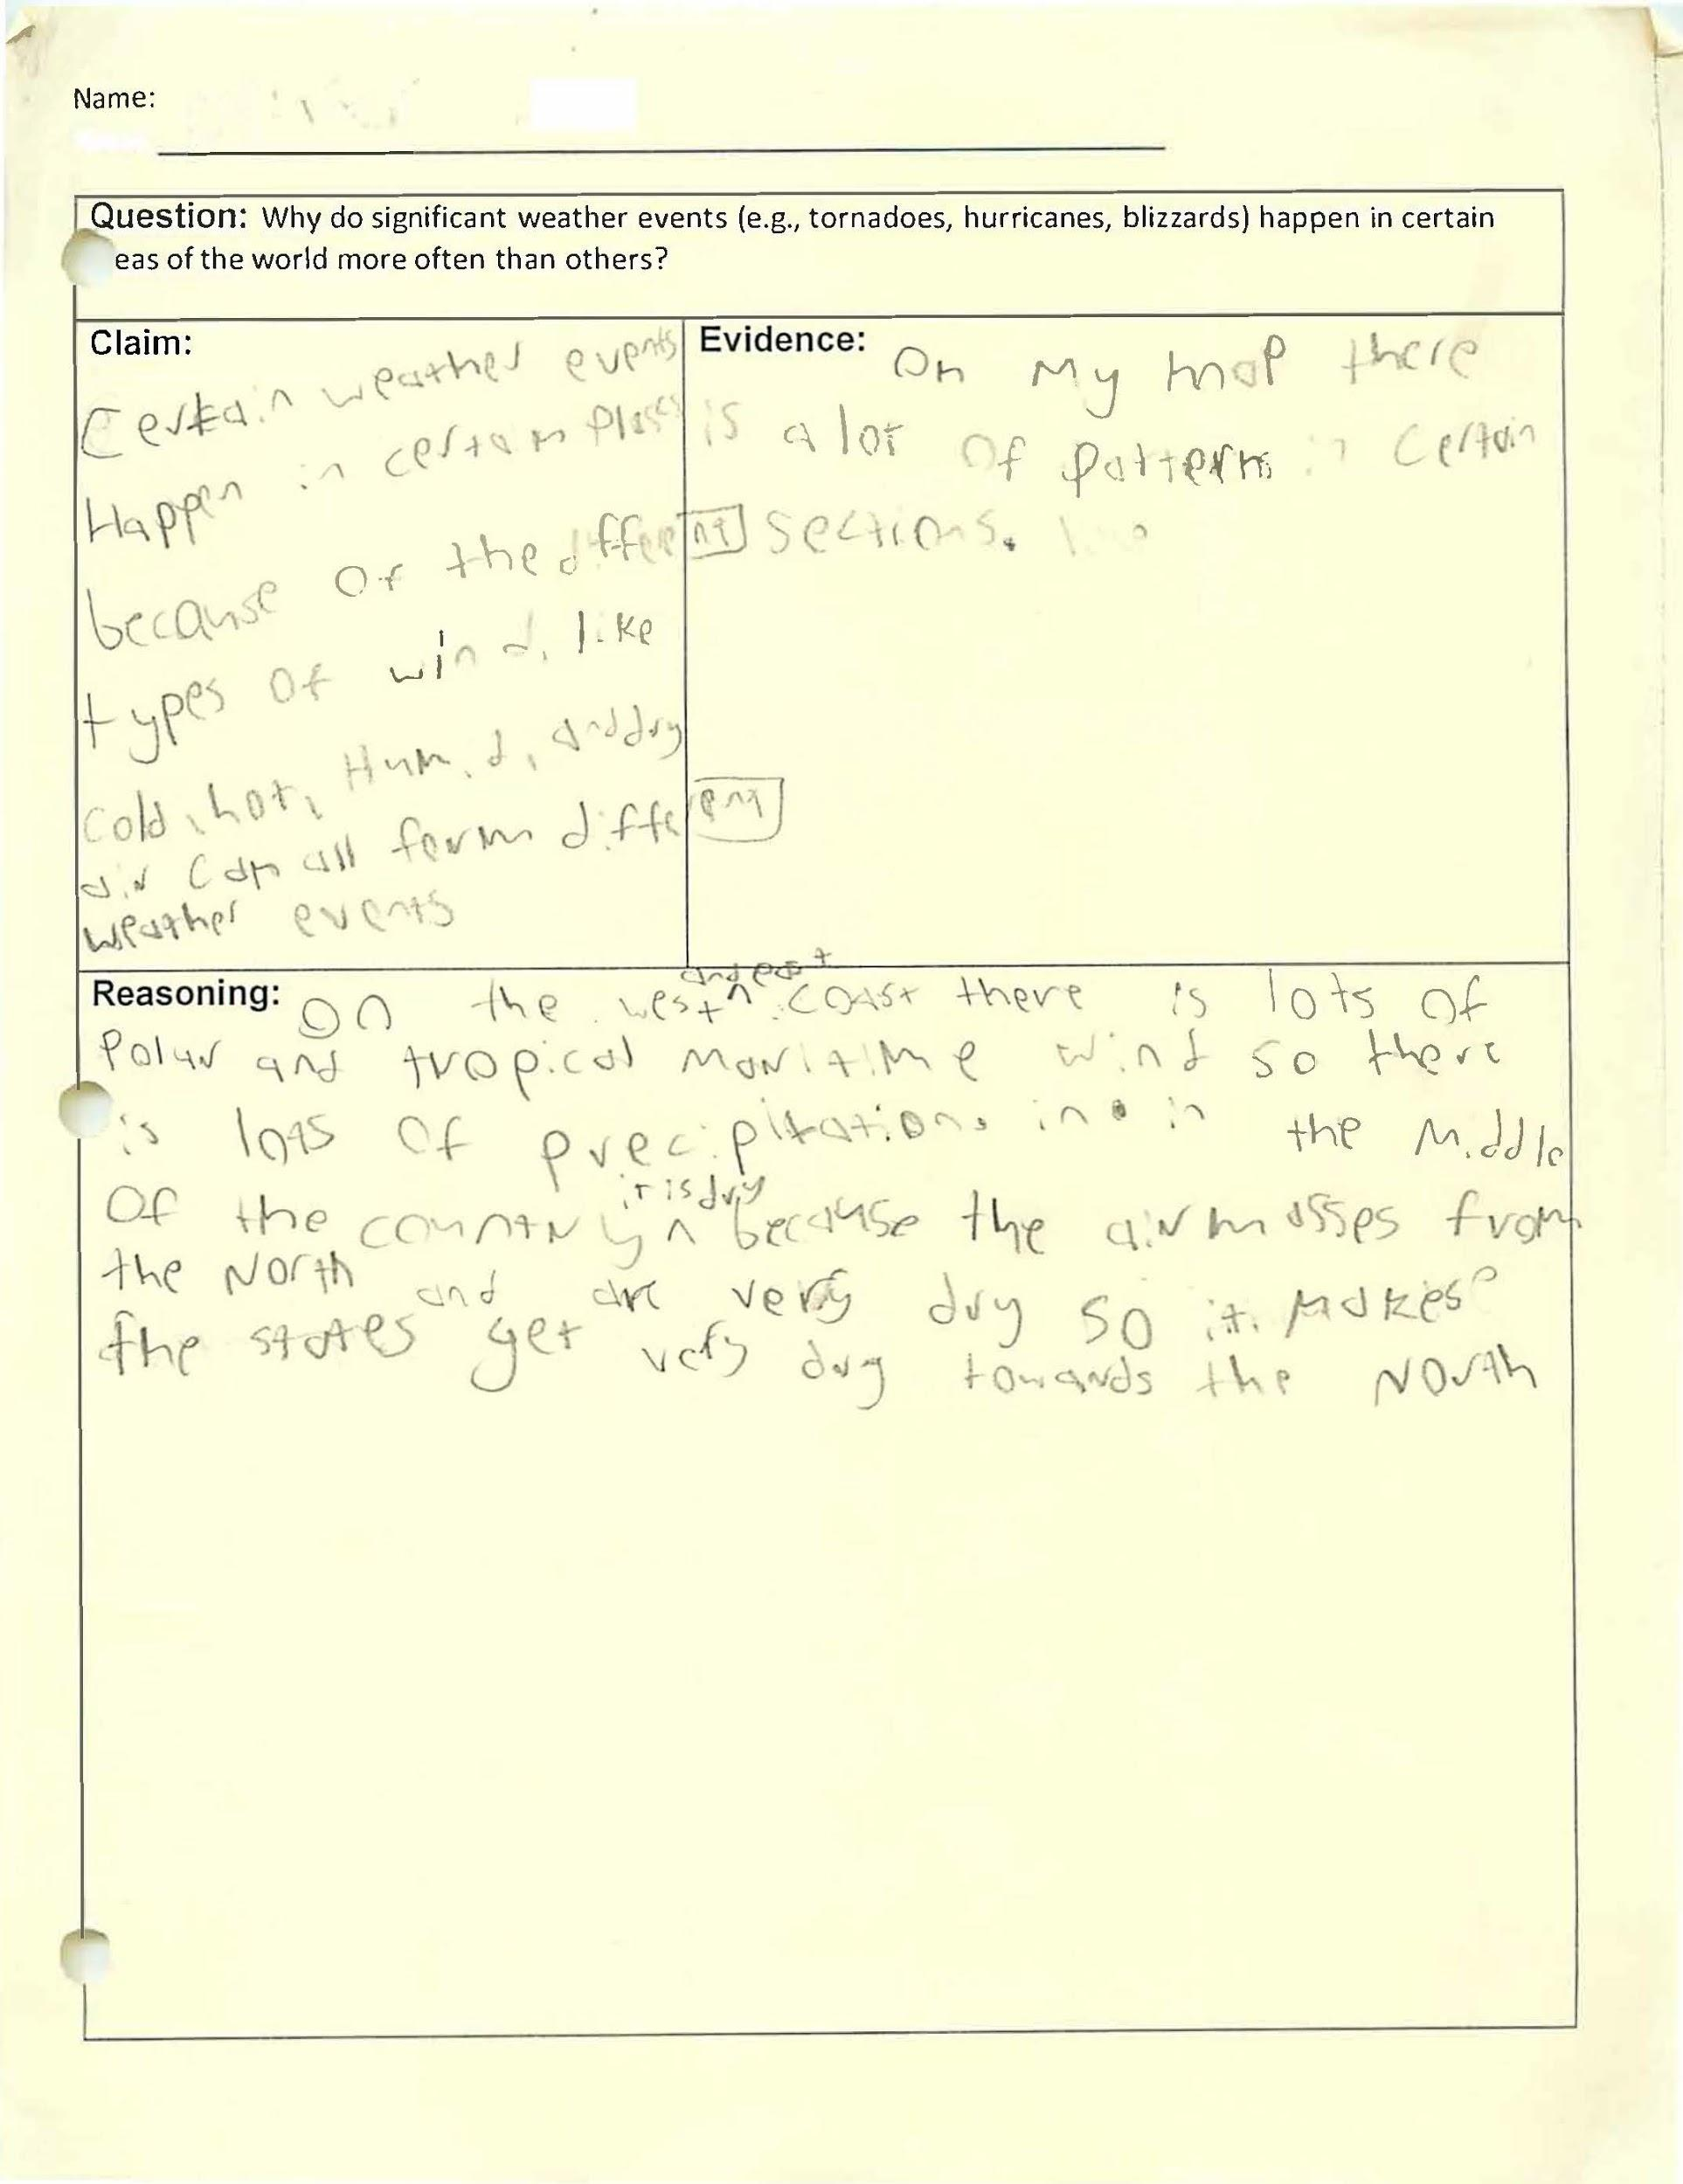 Name:
Question: Why do significant weather events (e.g., tornadoes, hurricanes, blizzards) happen in certain
eas of the world more often than others?
Claim:
Certain weather events
Happen in certain
because of the different
types of wind, like
cold, hot, Humid, and dry
air can all form different
weather events
Evidence:
On My map there
is a lot of pattern in certain
sections.
Reasoning:
and east
On the west ^ coast there is lots of
Polar and tropical Maritime wind so there
is lots of precipitation. in the Middle
it is dry
Of the country ^ because the air masses from
the North and are very dry so it Makes
the states get very dry towards the North